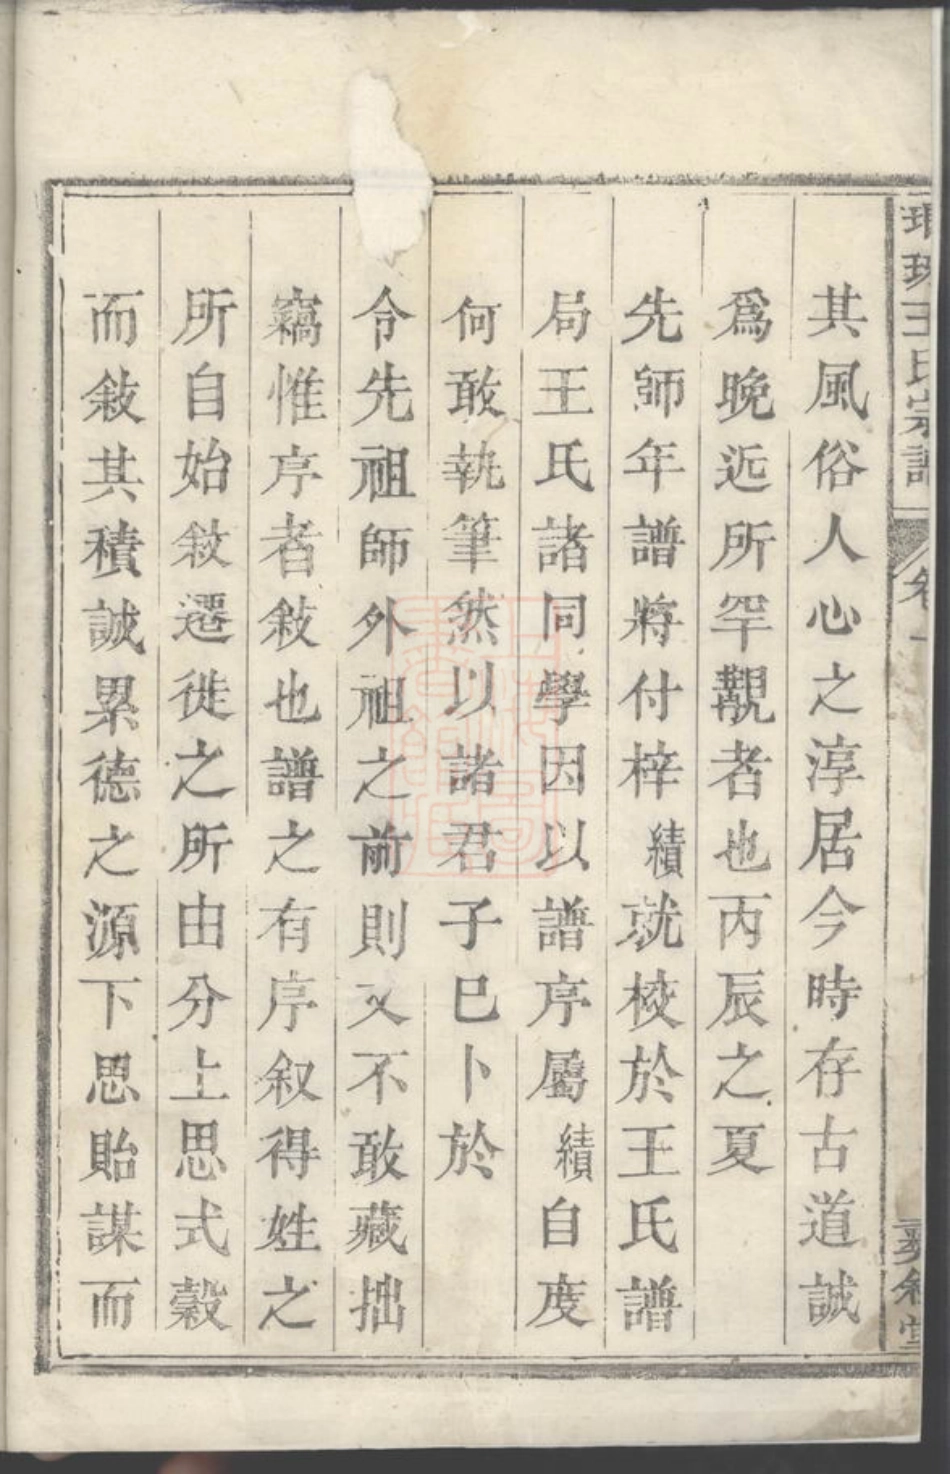 琅琊王氏宗譜
卷一
其風俗人心之淳居今時存古道誠
爲晚近所罕覯者也丙辰之夏
先師年譜將付梓績就校於王氏譜
局王氏諸同學因以譜序屬績自度
何敢執筆然以諸君子巳卜於
令先祖師外祖之前則又不敢藏拙
竊惟序者敍也譜之有序叙得姓之
所自始敍遷徙之所由分上思式穀
而敍其積誠累德之源下思貽謀而